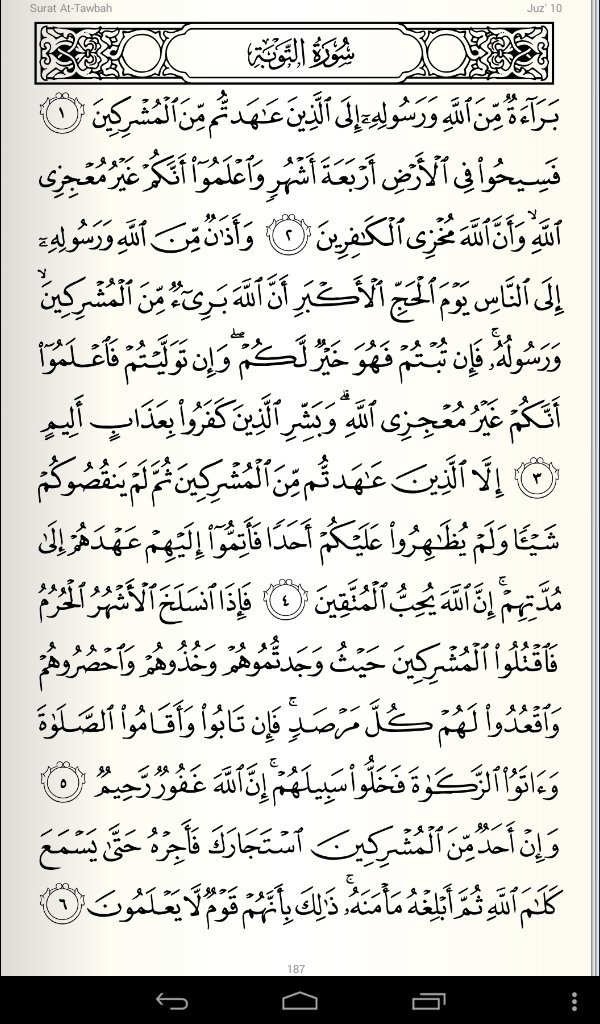 Surat At-Tawbah
Juz' 10
سُورَةُ التَّوۡبَةِ
بَرَآءَةٞ مِّنَ ٱللَّهِ وَرَسُولِهِۦٓ إِلَى ٱلَّذِينَ عَٰهَدتُّم مِّنَ ٱلۡمُشۡرِكِينَ ١
فَسِيحُواْ فِي ٱلۡأَرۡضِ أَرۡبَعَةَ أَشۡهُرٖ وَٱعۡلَمُوٓاْ أَنَّكُمۡ غَيۡرُ مُعۡجِزِي
ٱللَّهِ وَأَنَّ ٱللَّهَ مُخۡزِي ٱلۡكَٰفِرِينَ ٢ وَأَذَٰنٞ مِّنَ ٱللَّهِ وَرَسُولِهِۦٓ
إِلَى ٱلنَّاسِ يَوۡمَ ٱلۡحَجِّ ٱلۡأَكۡبَرِ أَنَّ ٱللَّهَ بَرِيٓءٞ مِّنَ ٱلۡمُشۡرِكِينَ
وَرَسُولُهُۥۚ فَإِن تُبۡتُمۡ فَهُوَ خَيۡرٞ لَّكُمۡۖ وَإِن تَوَلَّيۡتُمۡ فَٱعۡلَمُوٓاْ
أَنَّكُمۡ غَيۡرُ مُعۡجِزِي ٱللَّهِۗ وَبَشِّرِ ٱلَّذِينَ كَفَرُواْ بِعَذَابٍ أَلِيمٍ
٣ إِلَّا ٱلَّذِينَ عَٰهَدتُّم مِّنَ ٱلۡمُشۡرِكِينَ ثُمَّ لَمۡ يَنقُصُوكُمۡ
شَيۡـٔٗا وَلَمۡ يُظَٰهِرُواْ عَلَيۡكُمۡ أَحَدٗا فَأَتِمُّوٓاْ إِلَيۡهِمۡ عَهۡدَهُمۡ إِلَىٰ
مُدَّتِهِمۡۚ إِنَّ ٱللَّهَ يُحِبُّ ٱلۡمُتَّقِينَ ٤ فَإِذَا ٱنسَلَخَ ٱلۡأَشۡهُرُ ٱلۡحُرُمُ
فَٱقۡتُلُواْ ٱلۡمُشۡرِكِينَ حَيۡثُ وَجَدتُّمُوهُمۡ وَخُذُوهُمۡ وَٱحۡصُرُوهُمۡ
وَٱقۡعُدُواْ لَهُمۡ كُلَّ مَرۡصَدٖۚ فَإِن تَابُواْ وَأَقَامُواْ ٱلصَّلَوٰةَ
وَءَاتَوُاْ ٱلزَّكَوٰةَ فَخَلُّواْ سَبِيلَهُمۡۚ إِنَّ ٱللَّهَ غَفُورٞ رَّحِيمٞ ٥
وَإِنۡ أَحَدٞ مِّنَ ٱلۡمُشۡرِكِينَ ٱسۡتَجَارَكَ فَأَجِرۡهُ حَتَّىٰ يَسۡمَعَ
كَلَٰمَ ٱللَّهِ ثُمَّ أَبۡلِغۡهُ مَأۡمَنَهُۥۚ ذَٰلِكَ بِأَنَّهُمۡ قَوۡمٞ لَّا يَعۡلَمُونَ ٦
187